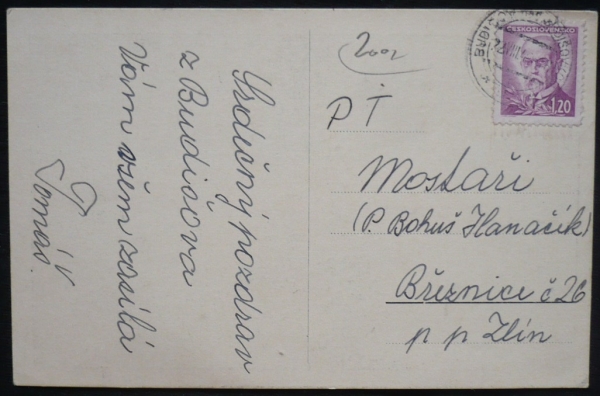 Srdečný pozdrav
z Budišova
Vám všem zasílá
Tomáš.
2002
PT
Mostaři
(P. Bohuš Hanačík)
Březnice č 26
p p Zlín
ČESKOSLOVENSKO
1.20